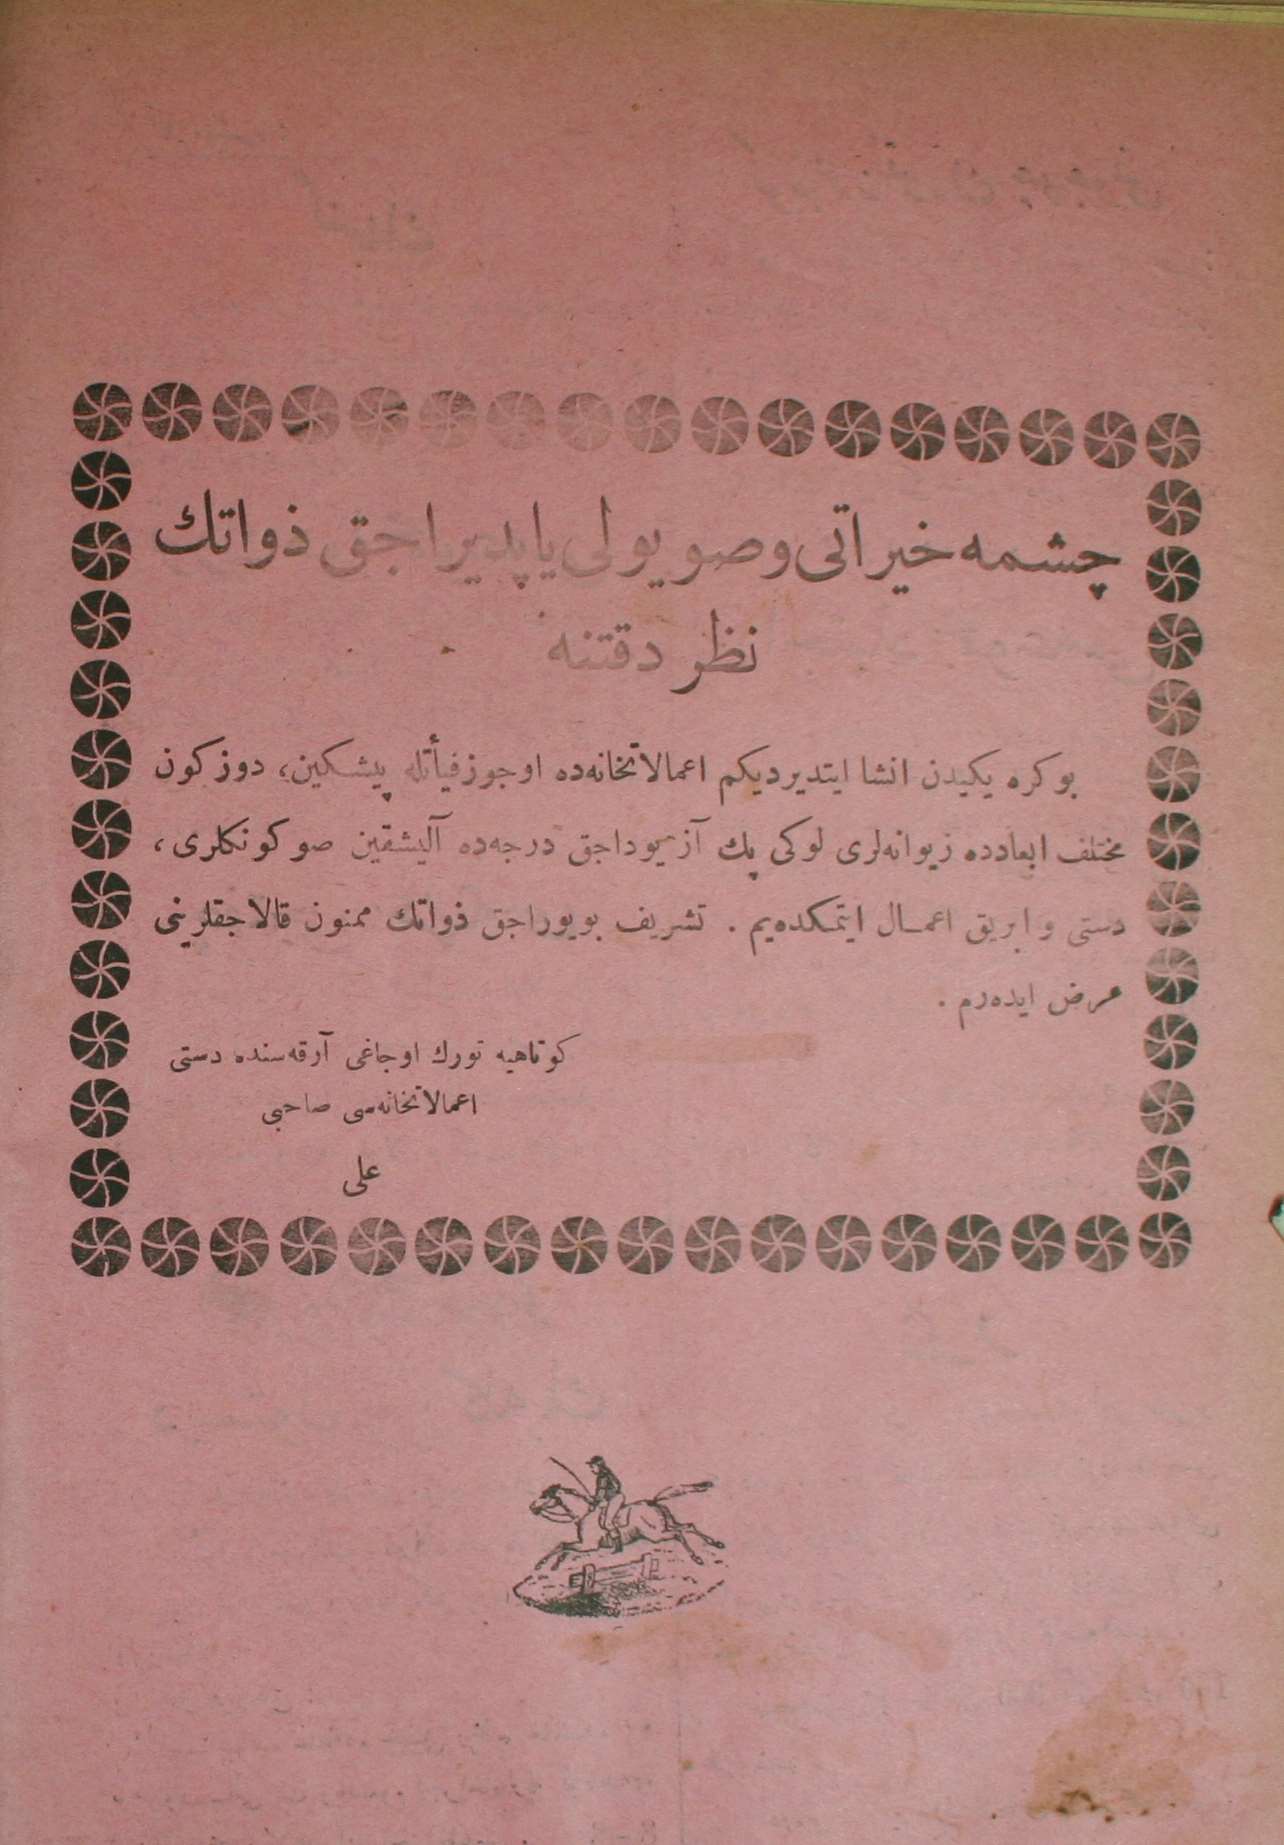 چشمه خیراتی و صو یولی یاپدیراجق ذواتك
نظر دقتنه
بو کره یکیدن انشا ایتدیردیکم اعمالاتخانه‌ده اوجوز فیأتله پیشکین، دوزکون
مختلف ابعادده زیوانه‌لری لوکی پك آز یوداجق درجه‌ده آلیشقین صو کونکلری،
دستی و ابریق اعمال ایتمکده‌یم . تشریف بویوراجق ذواتك ممنون قالاجقلرینی
عرض ایده‌رم .
کوتاهیه تورك اوجاغی آرقه‌سنده دستی
اعمالاتخانه‌سی صاحبی
علی